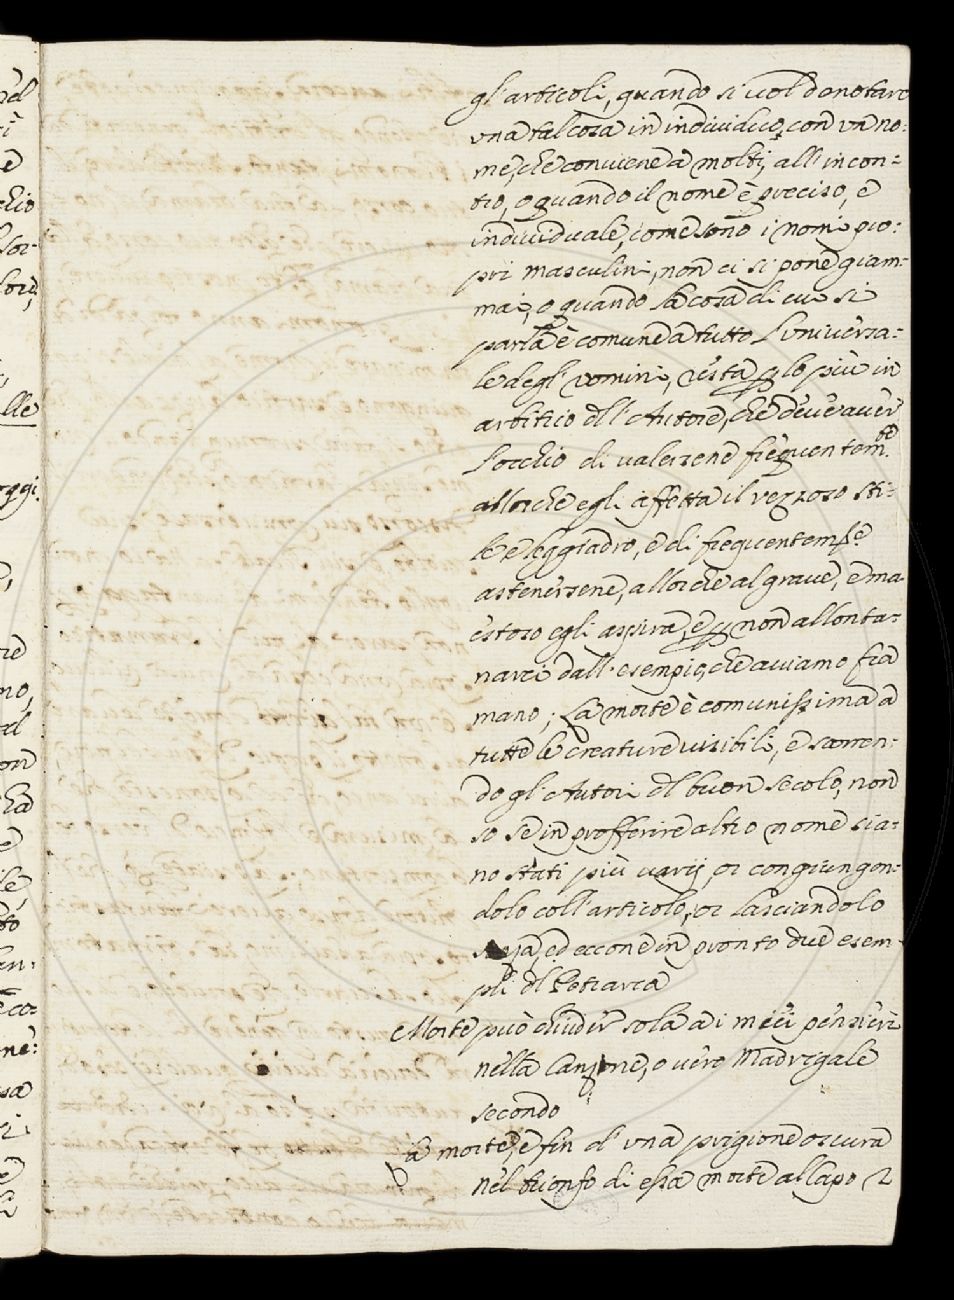 gl'articoli, quando si vol denotare
vna tal cosa in indiuiduo, con vn no:
me, che conviene a molti, all'incon=
tro, quando il nome è preciso, e
indiuiduale, come sono i nomi pro:
pri masculini, non ci si pone giam:
mai, o quando la cosa di cui si
parla è comune a tutto l'vniuersa:
le degl'vomini, resta p lo più in
arbitrio dll'Autore, che deve aver
l'occhio di valersene frequentem.te
allorche egli affetta il vezzoso sti:
le e leggiadro, e di frequentemse
astenersene, allorche al grave, e ma
estoso egli aspira, e p non allonta:
narci dall'esempio, che aviamo fra
mano; La morte è comunissima a
tutte le creature visibili, e scorren:
do gl'Autori dl buon secolo, non
so se in profferire altro nome sia:
no stati più varij, or congiungen:
dolo coll'articolo, or lasciandolo
ed eccone in pronto due esem
pli dl Petrarca
Morte può chiuder sola a i miei pensieri
nella Canzone, o vero Madrigale
secondo
La morte, è fin d'vna prigione oscura
nel trionfo di essa morte al Capo 2